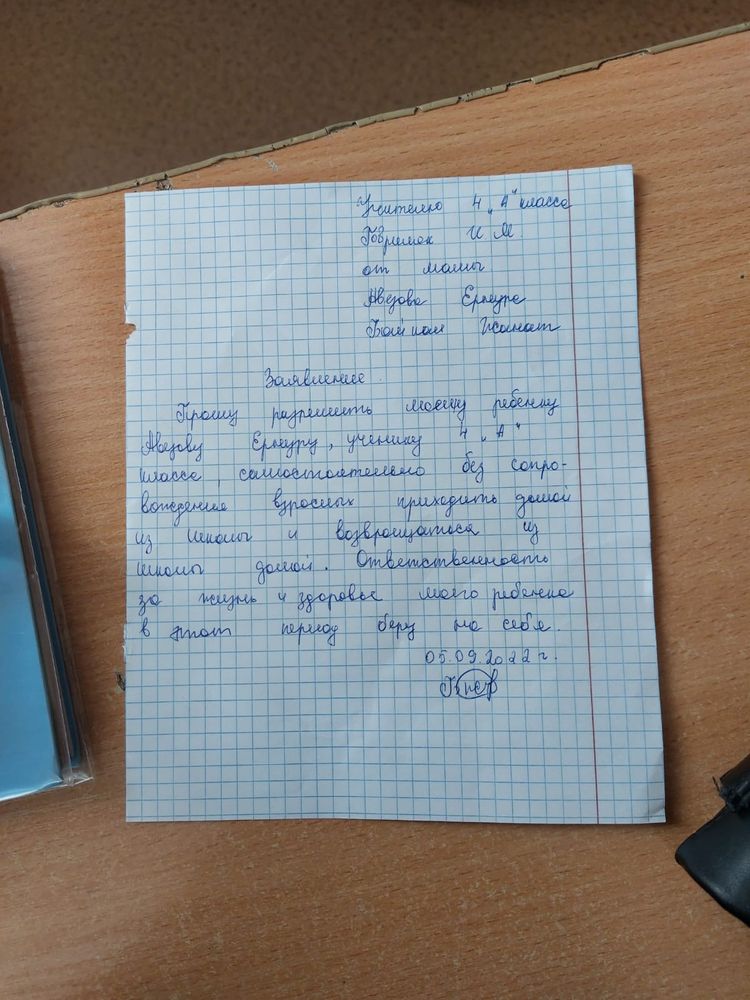 Учителю 4 „А" класса
И. М.
от мамы
Авезова Ернура
Жанат
Заявление.
Прошу разрешить моему ребенку
Авезову Ернуру, ученику 4 „А"
класса, самостоятельно без сопро-
вождения взрослых приходить домой
из школы и возвращаться из
школы домой. Ответственность
за жизнь и здоровье моего ребенка
в этот период беру на себя.
05.09.2022 г.